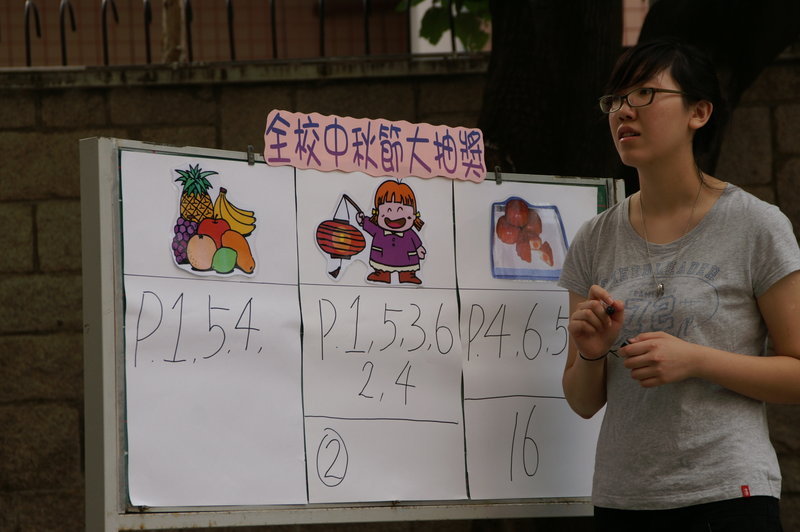 全校中秋節大抽獎
P.1,5,4,
P.1,5,3,6
2,4
②
P.4,6,5
16